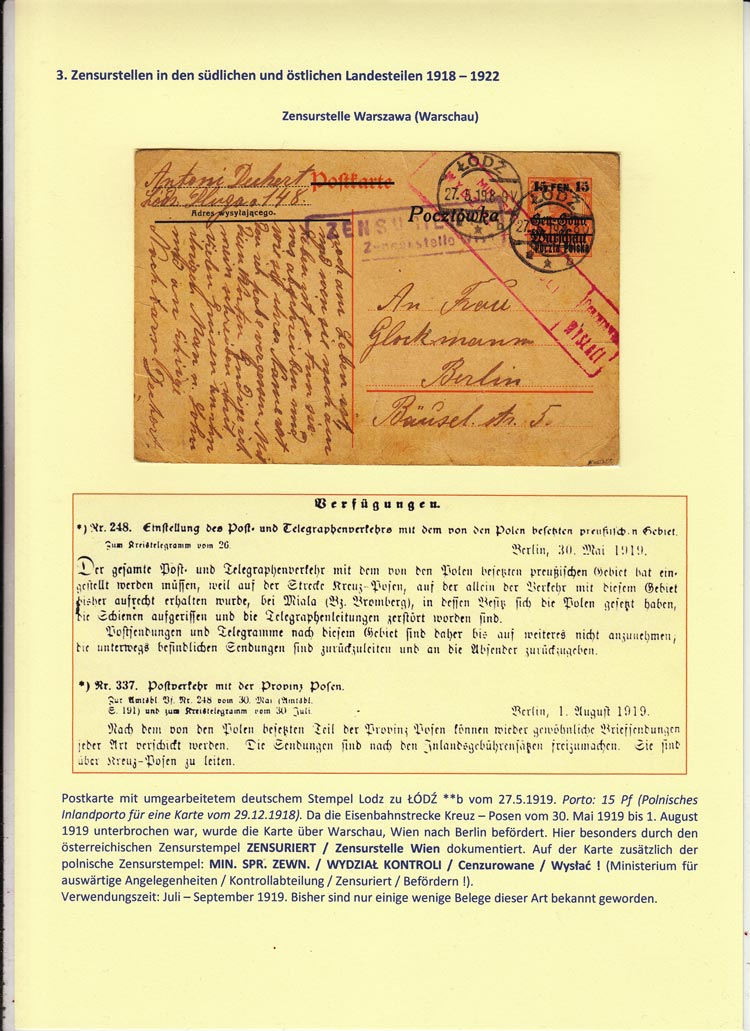 3. Zensurstellen in den südlichen und östlichen Landesteilen 1918 – 1922
Zensurstelle Warszawa (Warschau)
Antoni Deckert
Łódź Długa 148
Adres wysyłającego.
Postkarte
Pocztówka
ŁÓDŹ
27.5.19.8-9V
* * b
ŁÓDŹ
* * b
15 FEN. 15
Gen.-Gouv.
Warschau
Poczta Polska
ZENSU
Zensurstelle
WYSŁAĆ!
An Frau
Glockmann
Berlin
Bäusel. str. 5.
noch am Leben ist
und wie sie
mir auf ihres Name ist
Verfügungen.
*) Nr. 248. Einstellung des Post- und Telegraphenverkehrs mit dem von den Polen besetzten preußischen Gebiet.
Zum Kreistelegramm vom 26.
Berlin, 30. Mai 1919.
Der gesamte Post- und Telegraphenverkehr mit dem von den Polen besetzten preußischen Gebiet hat ein-
gestellt werden müssen, weil auf der Strecke Kreuz-Posen, auf der allein der Verkehr mit diesem Gebiet
bisher aufrecht erhalten wurde, bei Miala (Bz. Bromberg), in dessen Besitz sich die Polen gesetzt haben,
die Schienen aufgerissen und die Telegraphenleitungen zerstört worden sind.
Postsendungen und Telegramme nach diesem Gebiet sind daher bis auf weiteres nicht anzunehmen,
die unterwegs befindlichen Sendungen sind zurückzuleiten und an die Absender zurückzugeben.
*) Nr. 337. Postverkehr mit der Provinz Posen.
Zur Amtsbl. Vf. Nr. 248 vom 30. Mai (Amtsbl.
S. 191) und zum Kreistelegramm vom 30 Juli.
Berlin, 1. August 1919.
Nach dem von den Polen besetzten Teil der Provinz Posen können wieder gewöhnliche Briefsendungen
jeder Art verschickt werden. Die Sendungen sind nach den Inlandsgebührensätzen freizumachen. Sie sind
über Kreuz-Posen zu leiten.
Postkarte mit umgearbeitetem deutschem Stempel Lodz zu ŁÓDŹ **b vom 27.5.1919. Porto: 15 Pf (Polnisches
Inlandporto für eine Karte vom 29.12.1918). Da die Eisenbahnstrecke Kreuz – Posen vom 30. Mai 1919 bis 1. August
1919 unterbrochen war, wurde die Karte über Warschau, Wien nach Berlin befördert. Hier besonders durch den
österreichischen Zensurstempel ZENSURIERT / Zensurstelle Wien dokumentiert. Auf der Karte zusätzlich der
polnische Zensurstempel: MIN. SPR. ZEWN. / WYDZIAŁ KONTROLI / Cenzurowane / Wysłać ! (Ministerium für
auswärtige Angelegenheiten / Kontrollabteilung / Zensuriert / Befördern !).
Verwendungszeit: Juli – September 1919. Bisher sind nur einige wenige Belege dieser Art bekannt geworden.